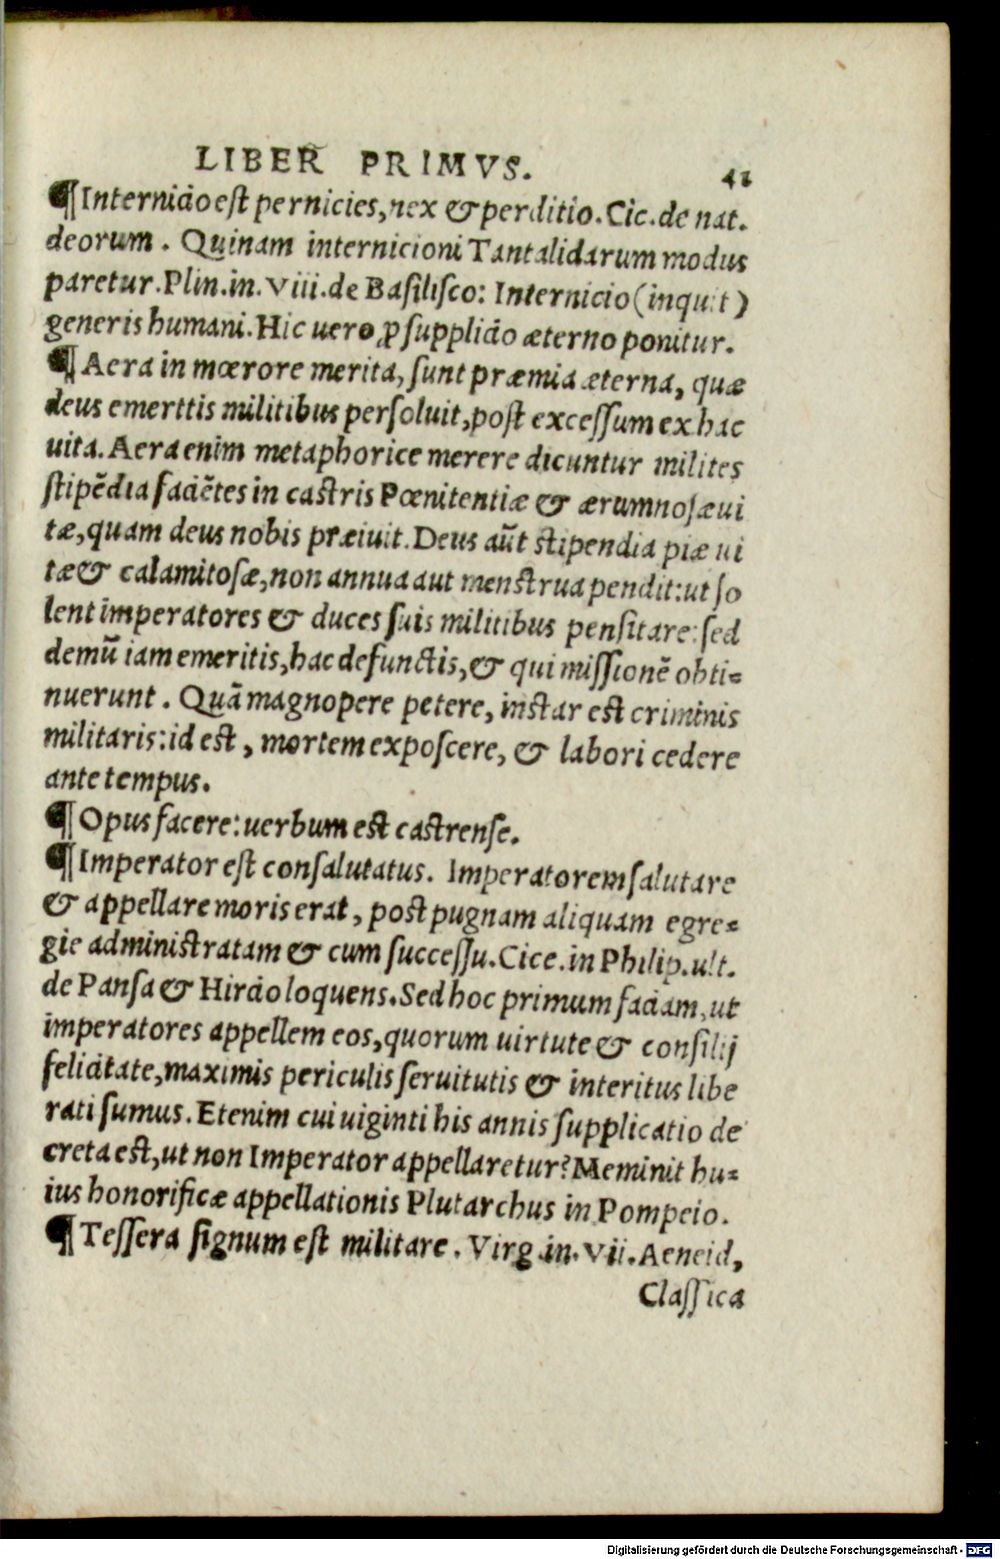 LIBER PRIMVS. 41
¶Internicio est pernicies, nex & perditio. Cic. de nat.
deorum. Quinam internicioni Tantalidarum modus
paretur. Plin. in. Viii. de Basilisco: Internicio (inquit)
generis humani. Hic uero ꝓ supplicio æterno ponitur.
¶Aera in mœrore merita, sunt præmia æterna, quæ
deus emerttis militibus persoluit, post excessum ex hac
uita. Aera enim metaphorice merere dicuntur milites
stipẽdia faciẽtes in castris Pœnitentiæ & ærumnosæ ui
tæ, quam deus nobis præiuit. Deus aũt stipendia piæ ui
tæ & calamitosæ, non annua aut menstrua pendit: ut so
lent imperatores & duces suis militibus pensitare: sed
demũ iam emeritis, hac defunctis, & qui missionẽ obti=
nuerunt. Quã magnopere petere, instar est criminis
militaris: id est, mortem exposcere, & labori cedere
ante tempus.
¶Opus facere: uerbum est castrense.
¶Imperator est consalutatus. Imperatorem salutare
& appellare moris erat, post pugnam aliquam egre=
gie administratam & cum successu. Cice. in Philip. ult.
de Pansa & Hircio loquens. Sed hoc primum faciam, ut
imperatores appellem eos, quorum uirtute & consilij
felicitate, maximis periculis seruitutis & interitus libe
rati sumus. Etenim cui uiginti his annis supplicatio de
creta est, ut non Imperator appellaretur? Meminit hu=
ius honorificæ appellationis Plutarchus in Pompeio.
¶Tessera signum est militare. Virg. in. Vii. Aeneid,
Classica
Digitalisierung gefördert durch die Deutsche Forschungsgemeinschaft - DFG